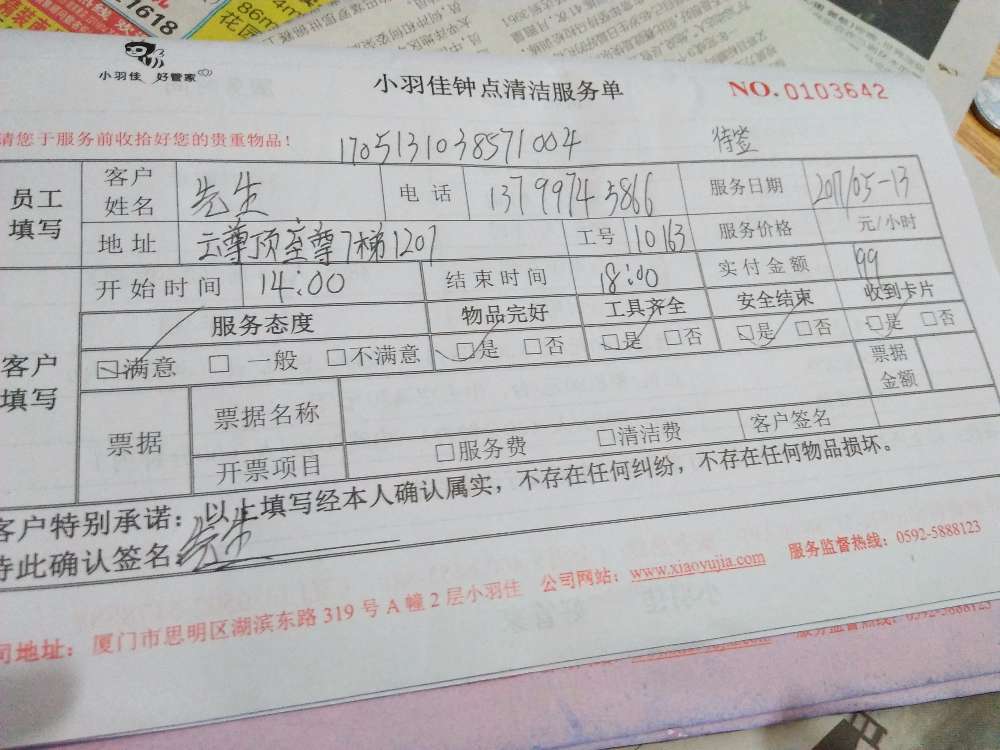 1618
86m
花园
小羽佳 好管家
小羽佳钟点清洁服务单
NO.0103642
请您于服务前收拾好您的贵重物品!
1705131038571004
待签
员工填写
客户姓名 先生 电话 13799743866 服务日期 2017/05-13
地址 云尊顶至尊7梯1207 工号 10163 服务价格 元/小时
客户填写
开始时间 14:00 结束时间 18:00 实付金额 99
服务态度 物品完好 工具齐全 安全结束 收到卡片
☑满意 □一般 □不满意 ☑是 □否 ☑是 □否 ☑是 □否 ☑是 □否
票据 票据名称 票据金额
开票项目 □服务费 □清洁费 客户签名
客户特别承诺:以上填写经本人确认属实,不存在任何纠纷,不存在任何物品损坏。
特此确认签名:先生
司地址:厦门市思明区湖滨东路 319 号 A 幢 2 层小羽佳 公司网站:www.xiaoyujia.com 服务监督热线:0592-5888123
服务监督热线:0592-5888123